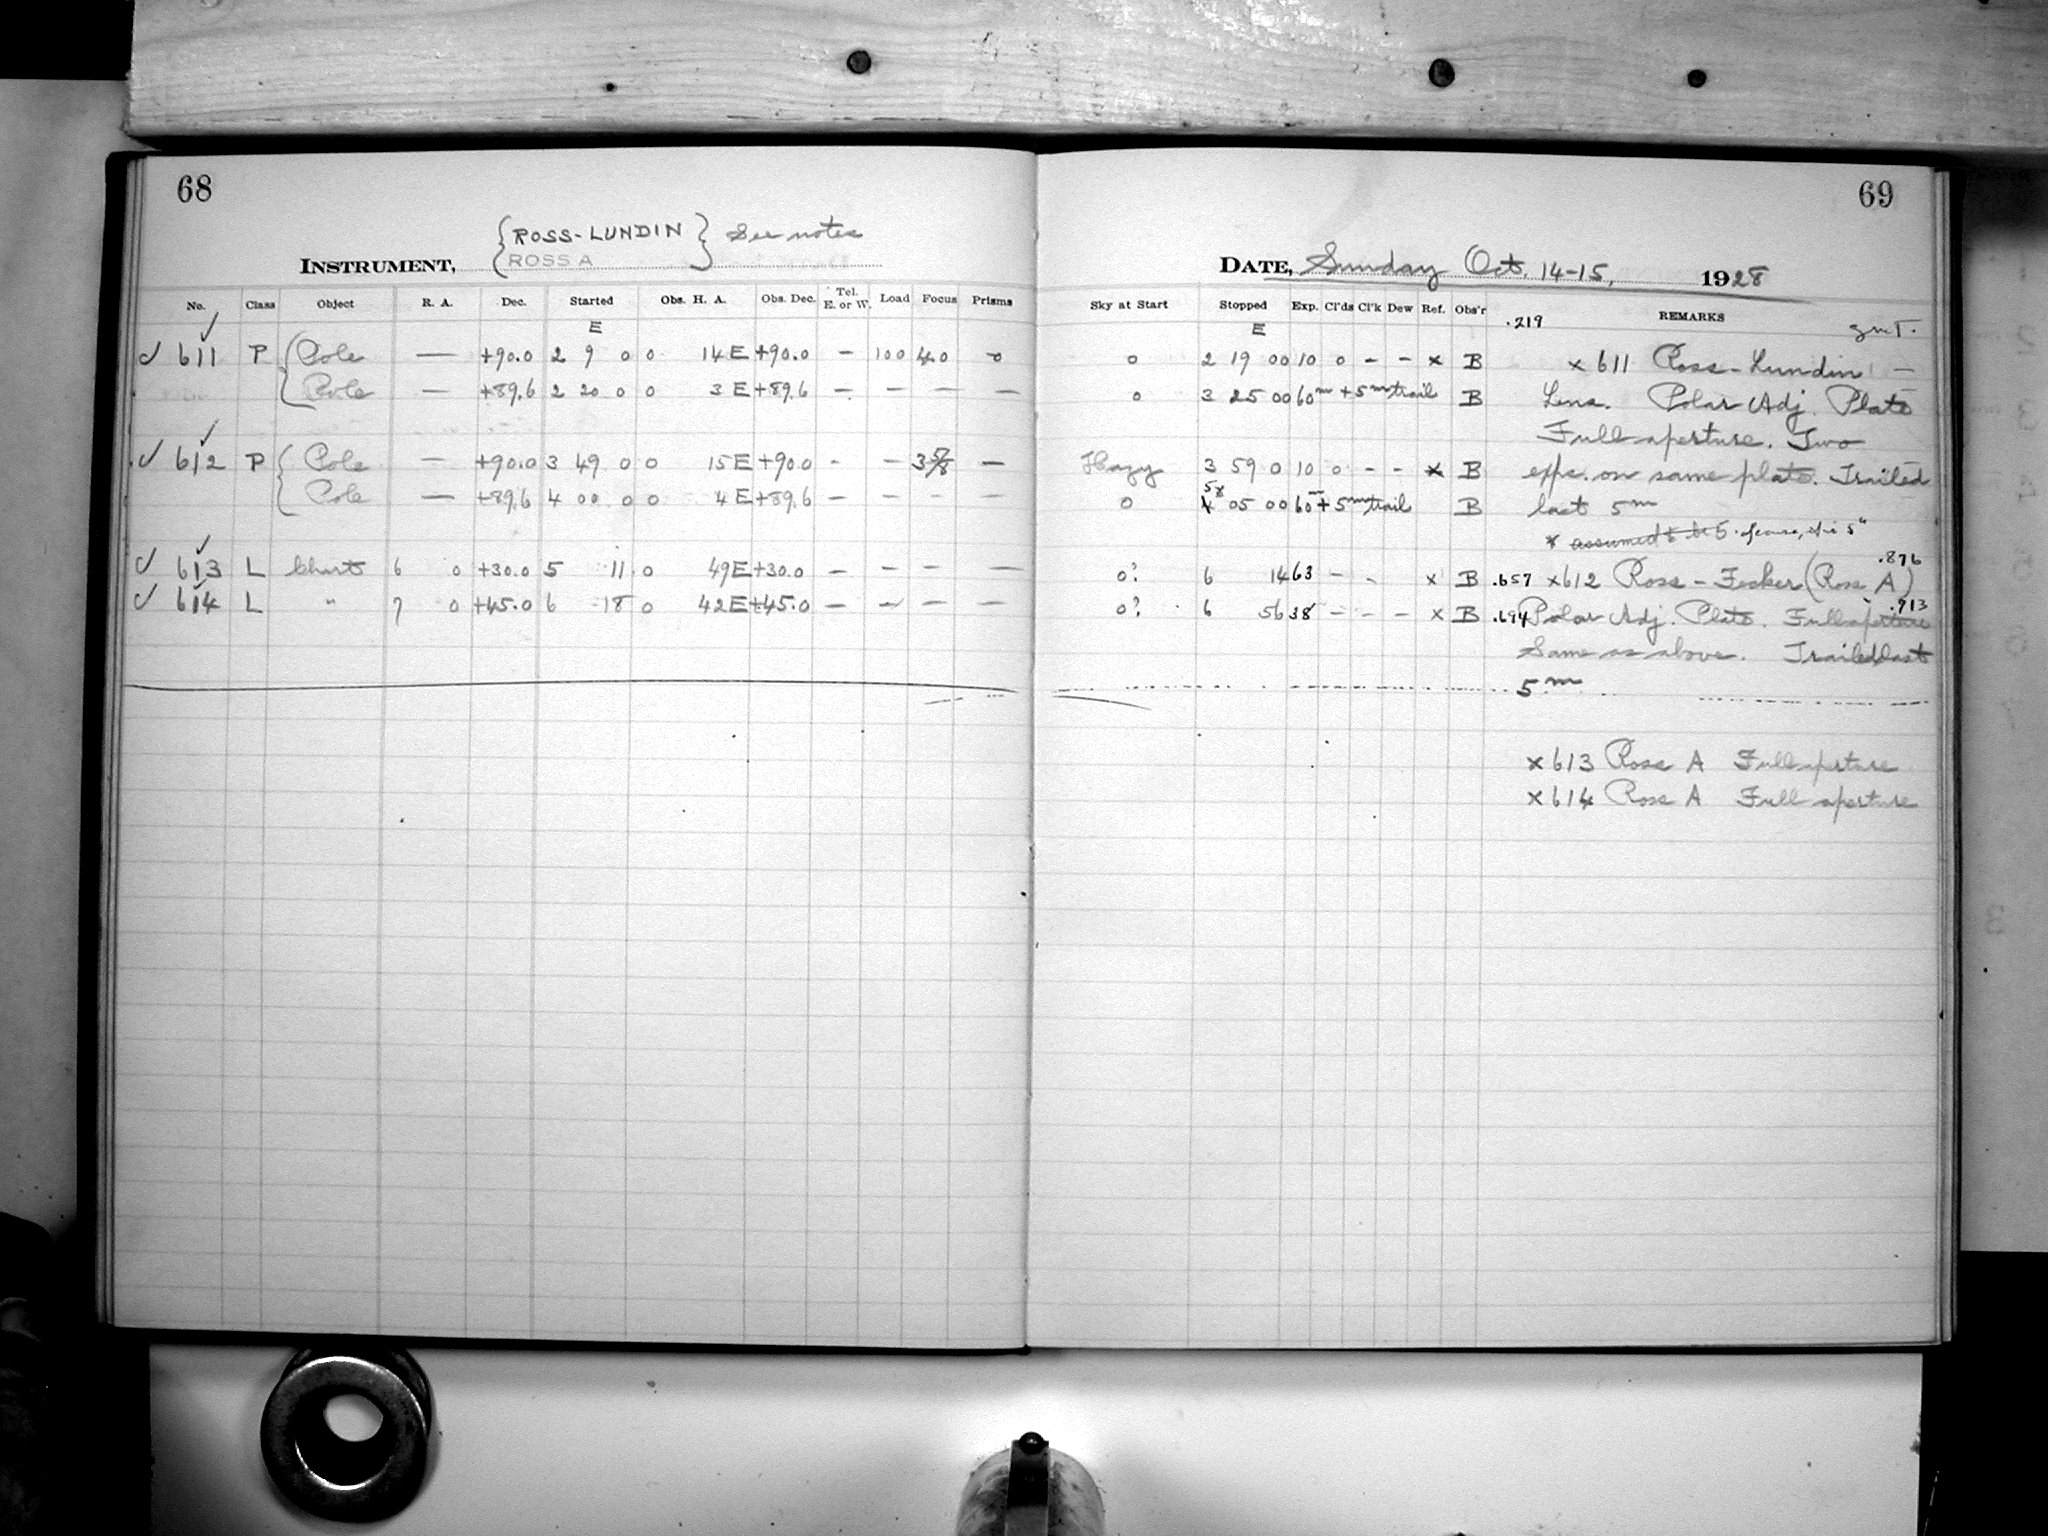 68
{ROSS-LUNDIN} See notes
INSTRUMENT, ROSS A
No. Class Object R. A. Dec. Started Obs. H. A. Obs. Dec. Tel. E. or W. Load Focus Prisms
E
✓ 611 ✓ P Pole — +90.0 2 9 0 0 14 E +90.0 — 100 4.0 0
Pole — +89.6 2 20 0 0 3 E +89.6 — — — —
✓ 612 ✓ P Pole — +90.0 3 49 0 0 15 E +90.0 - — 3 5/8 —
Pole — +89.6 4 00 0 0 4 E +89.6 — — — —
✓ 613 ✓ L Chart 6 0 +30.0 5 11 0 49 E +30.0 — — — —
✓ 614 ✓ L " 7 0 +45.0 6 18 0 42 E +45.0 — — — —
69
DATE, Sunday Oct. 14-15, 1928
Sky at Start Stopped Exp. Cl'ds Cl'k Dew Ref. Obs'r REMARKS
E .219 GMT.
0 2 19 00 10 0 – – x B x 611 Ross-Lundin
0 3 25 00 60m + 5m trail B Lens. Polar Adj. Plate
Full aperture. Two
Hazy 3 59 0 10 0 – – x B exps. on same plate. Trailed
0 5* 05 00 60m + 5m trail B last 5m
* assumed to be 5
.876
0? 6 14 63 – - x B .657 x612 Ross-Fecker (Ross A)
0? 6 56 38 – - – x B .694 Polar Adj. Plate. Full aperture .913
Same as above. Trailed last
5m
x 613 Ross A Full aperture
x 614 Ross A Full aperture